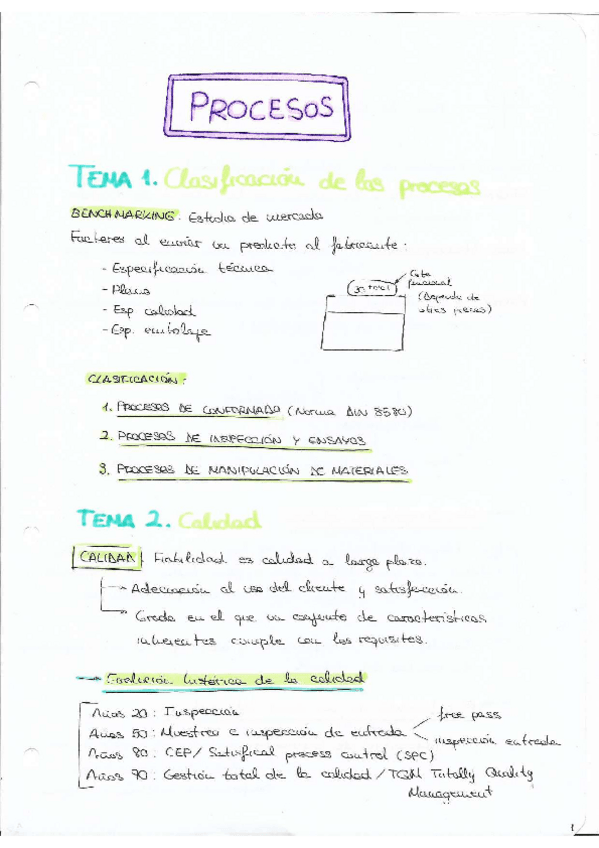 PROCESOS
TEMA 1. Clasificación de los procesos
BENCHMARKING. Estudio de mercado
Factores al enviar un producto al fabricante:
- Especificación técnica
- Plano
- Esp calidad
- Esp. embalaje
Cota
funcional
(Depende de
otras piezas)
CLASIFICACIÓN:
1. PROCESOS DE CONFORMADO (Norma DIN 8580)
2. PROCESOS DE INSPECCIÓN Y ENSAYOS
3. PROCESOS DE MANIPULACIÓN DE MATERIALES
TEMA 2. Calidad
CALIDAD Fiabilidad es calidad a largo plazo.
Adecuación al uso del cliente y satisfacción.
Grado en el que un conjunto de características
inherentes cumple con los requisitos.
Evolución histórica de la calidad
Años 20: Inspección
Años 50: Muestreo e inspección de entrada
free pass
inspección entrada
Años 80: CEP/ Satistical process control (SPC)
Años 90: Gestión total de la calidad / TQM Totally Quality
Management
1